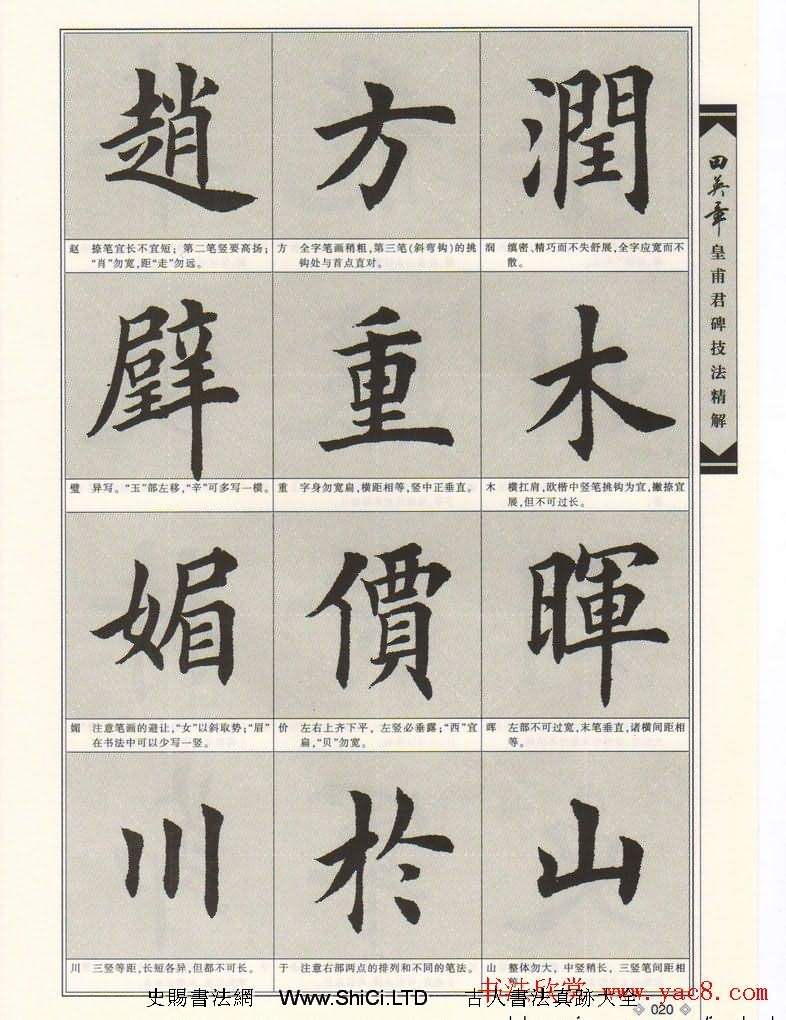 趙
方
潤
赵 捺笔宜长不宜短；第二笔竖要高扬；
“肖”勿宽，距“走”勿远。
方 全字笔画稍粗，第三笔(斜弯钩)的挑
钩处与首点直对。
润 缜密、精巧而不失舒展，全字应宽而不
散。
璧
重
木
璧 异写。“玉”部左移，“辛”可多写一横。
重 字身勿宽扁，横距相等，竖中正垂直。
木 横扛肩，欧楷中竖笔挑钩为宜，撇捺宜
展，但不可过长。
媚
價
暉
媚 注意笔画的避让，“女”以斜取势；“眉”
在书法中可以少写一竖。
价 左右上齐下平，左竖必垂露；“西”宜
扁，“贝”勿宽。
晖 左部不可过宽，末笔垂直，诸横间距相
等。
川
於
山
川 三竖等距，长短各异，但都不可长。
于 注意右部两点的排列和不同的笔法。
山 整体勿大，中竖稍长，三竖笔间距相
田英章
皇甫君碑技法精解
史賜書法網 Www.ShiCi.LTD 古人書法真跡大全
书法欣赏 www.yac8.com
020